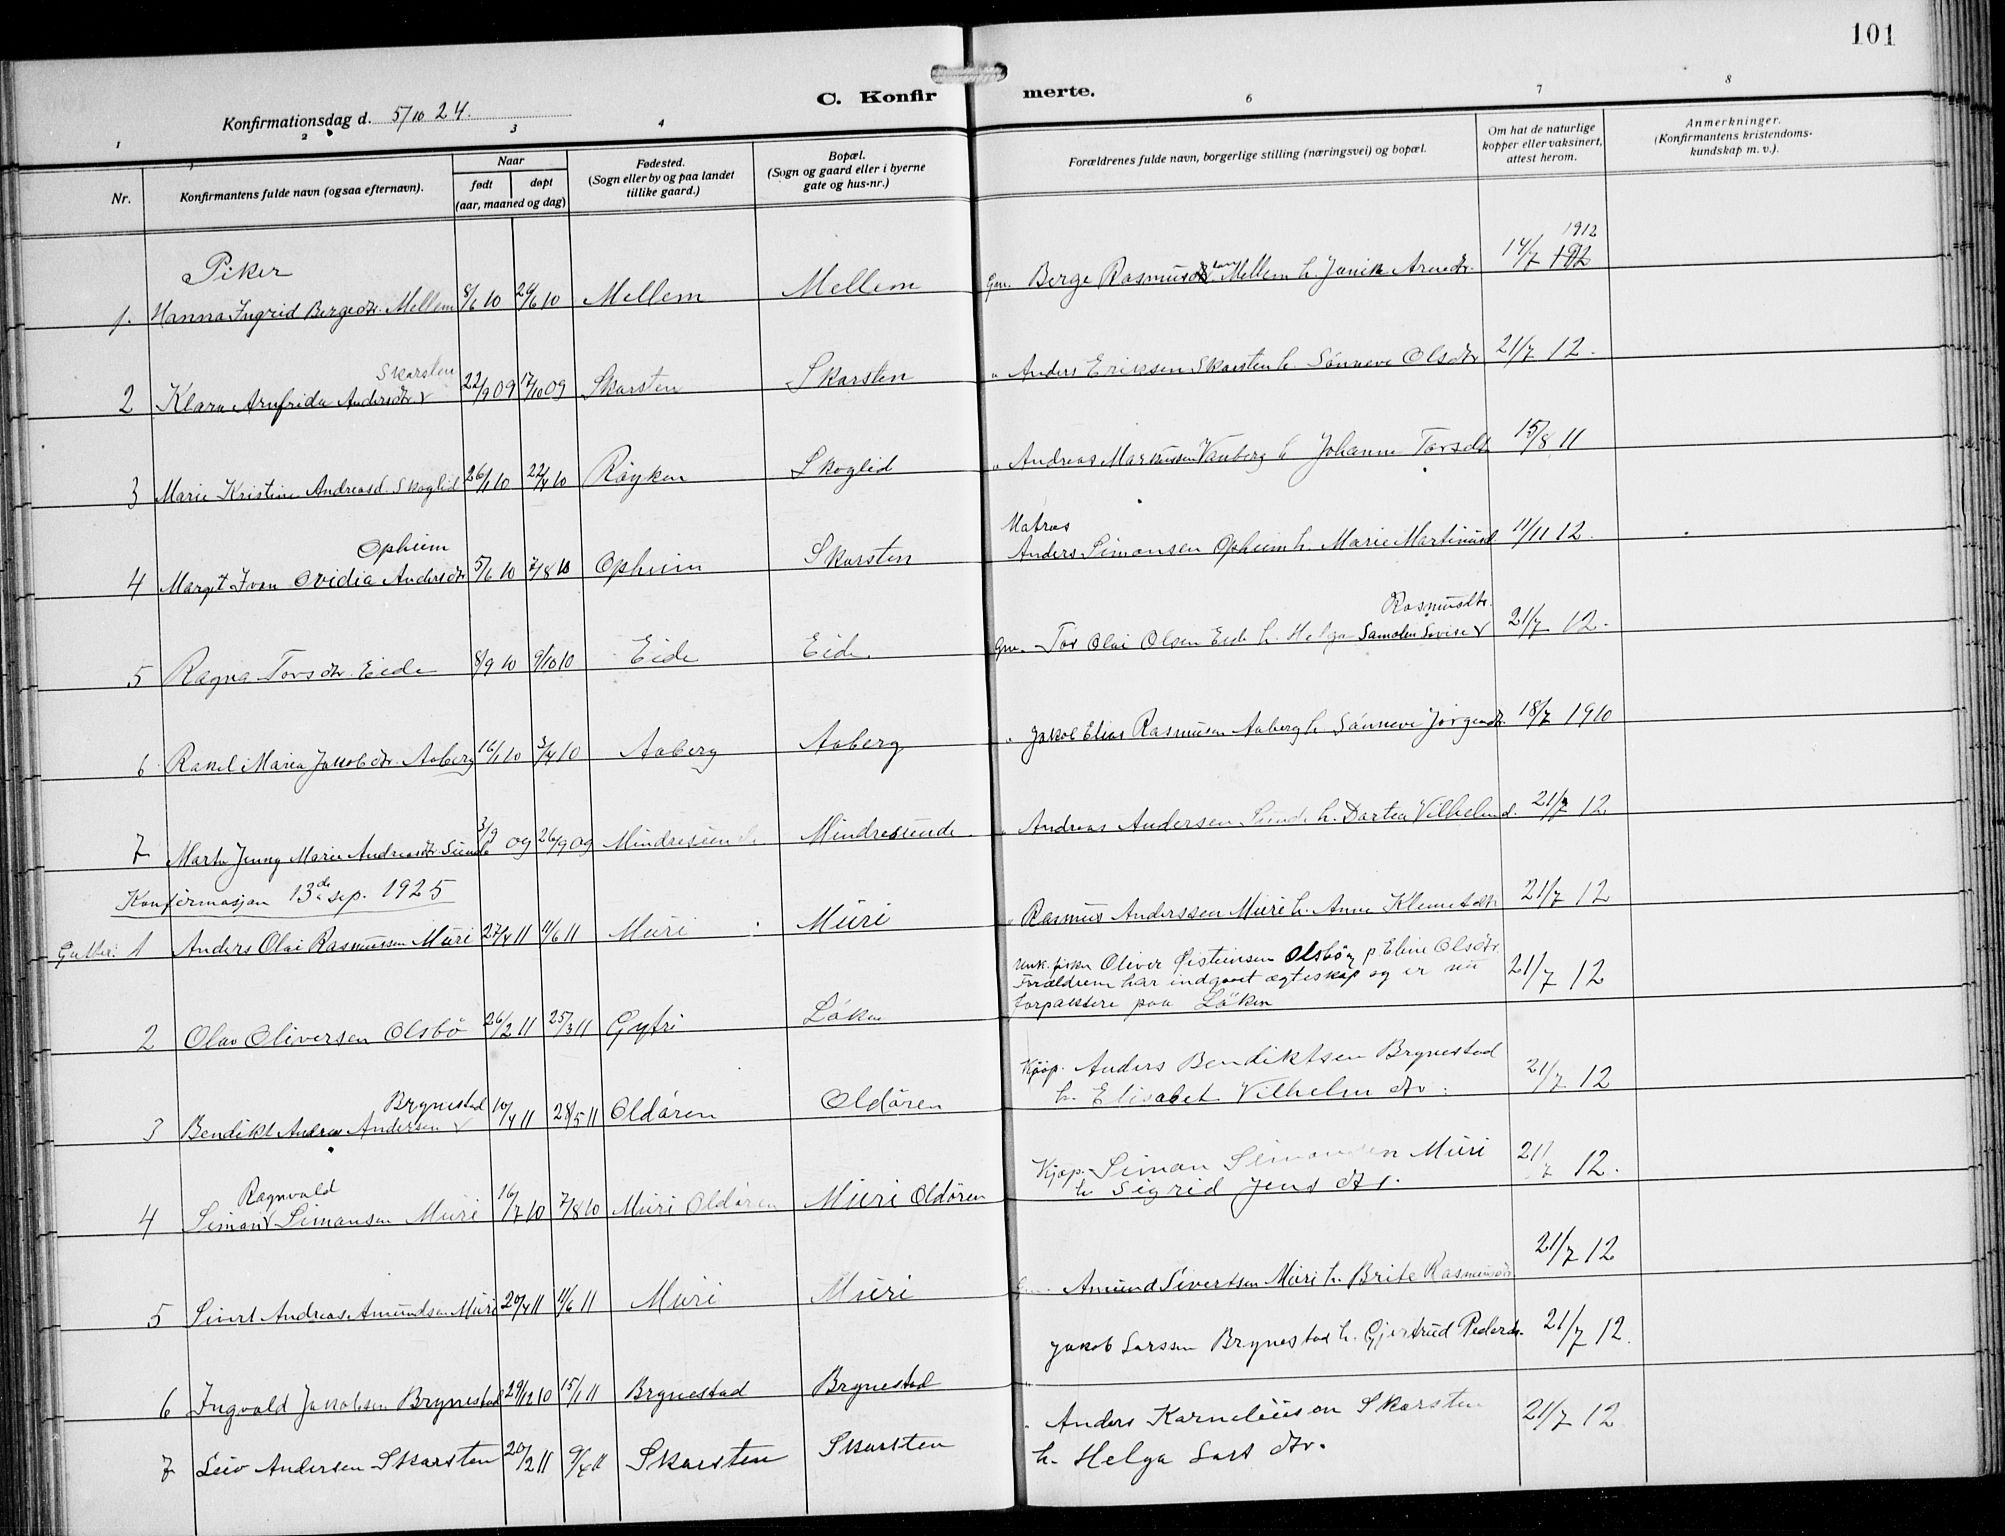 101
C. Konfirmerte.
Konfirmationsdag d. 5/10 24.
1 2 3 4 6 7 8
Nr.
Konfirmantens fulde navn (ogsaa efternavn).
Naar
født døpt
(aar, maaned og dag)
Fødested.
(Sogn eller by og paa landet
tillike gaard.)
Bopæl.
(Sogn og gaard eller i byerne
gate og hus-nr.)
Forældrenes fulde navn, borgerlige stilling (næringsvei) og bopæl.
Om hat de naturlige
kopper eller vaksinert,
attest herom.
Anmerkninger.
(Konfirmantens kristendoms-
kundskap m. v.).
Piker
1. Hanna Ingrid Bergesdtr. Mellem 8/6 10 26/6 10 Mellem Mellem Gm. Berge Rasmussen Mellem h. Janike Arnedtr. 14/7 1912
Skarsten
2 Klara Arnfrida Andersdtr 22/9 09 17/10 09 Skarsten Skarsten " Anders Eriksen Skarsten h. Sønneve Olsdtr 21/7 12.
3 Marie Kristine Andreasd. Skoglid 26/1 10 22/4 10 Røyken Skoglid " Andreas Markussen Vauberg h Johanne Torsdtr 15/8 11
Opheim
Matros
4 Margit Ivon Ovidia Andersdtr 5/6 10 7/8 10 Opheim Skarsten Anders Simonsen Opheim h. Marie Martinusd 11/11 12.
Rasmusdtr.
5 Ragna Torsdtr. Eide 8/9 10 9/10 10 Eide Eide. Gm. Tor Olai Olsen Eide h. Helga Samoline Lovise 21/7 12.
6 Rakel Maria Jakobdtr. Aaberg 16/1 10 3/4 10 Aaberg Aaberg " Jakob Elias Rasmusen Aaberg h Sønneve Jørgensdtr. 18/7 1910
7 Marta Jenny Marie Andreasdtr. Sunde 3/9 09 26/9 09 Mindresunde Mindresunde " Andreas Andersen Sunde h. Dortea Vilhelmd. 21/7 12
Konfirmasjon 13de sep. 1925
Gutter: 1 Anders Olai Rasmussen Muri 27/4 11 11/6 11 Muri Muri " Rasmus Anderssen Muri h. Anne Klemetsdtr 21/7 12
2 Olav Oliversen Olsbö 26/2 11 25/3 11 Gytri Løken Unk. fisker Oliver Øisteinsen Olsbö og p Eline Olsdtr.
Forældrene har indgaaet ægteskap og er nu
forpaktere paa Løken 21/7 12
Brynestad
3 Bendikt Andreas Andersen 10/4 11 28/5 11 Oldøren Oldøren Kjøp. Anders Bendiktsen Brynestad
h. Elisabet Vilhelm dtr. 21/7 12
Ragnvald
4 Simon Simonsen Muri 16/7 10 7/8 10 Muri Oldøren Muri Oldøren Kjøp. Simon Simonsen Muri
h Sigrid Jens dtr. 21/7 12.
5 Sivert Andreas Amundsen Muri 20/4 11 11/6 11 Muri Muri Amund Sivertsen Muri h. Brite Rasmusdtr 21/7 12
6 Ingvald Jakobsen Brynestad 29/12 10 15/1 11 Brynestad Brynestad Jakob Larssen Brynestad h. Gjertrud Pedersdtr. 21/7 12.
7 Leiv Andersen Skarsten 20/2 11 9/4 11 Skarsten Skarsten " Anders Korneliuson Skarsten
h. Helga Lars dtr. 21/7 12